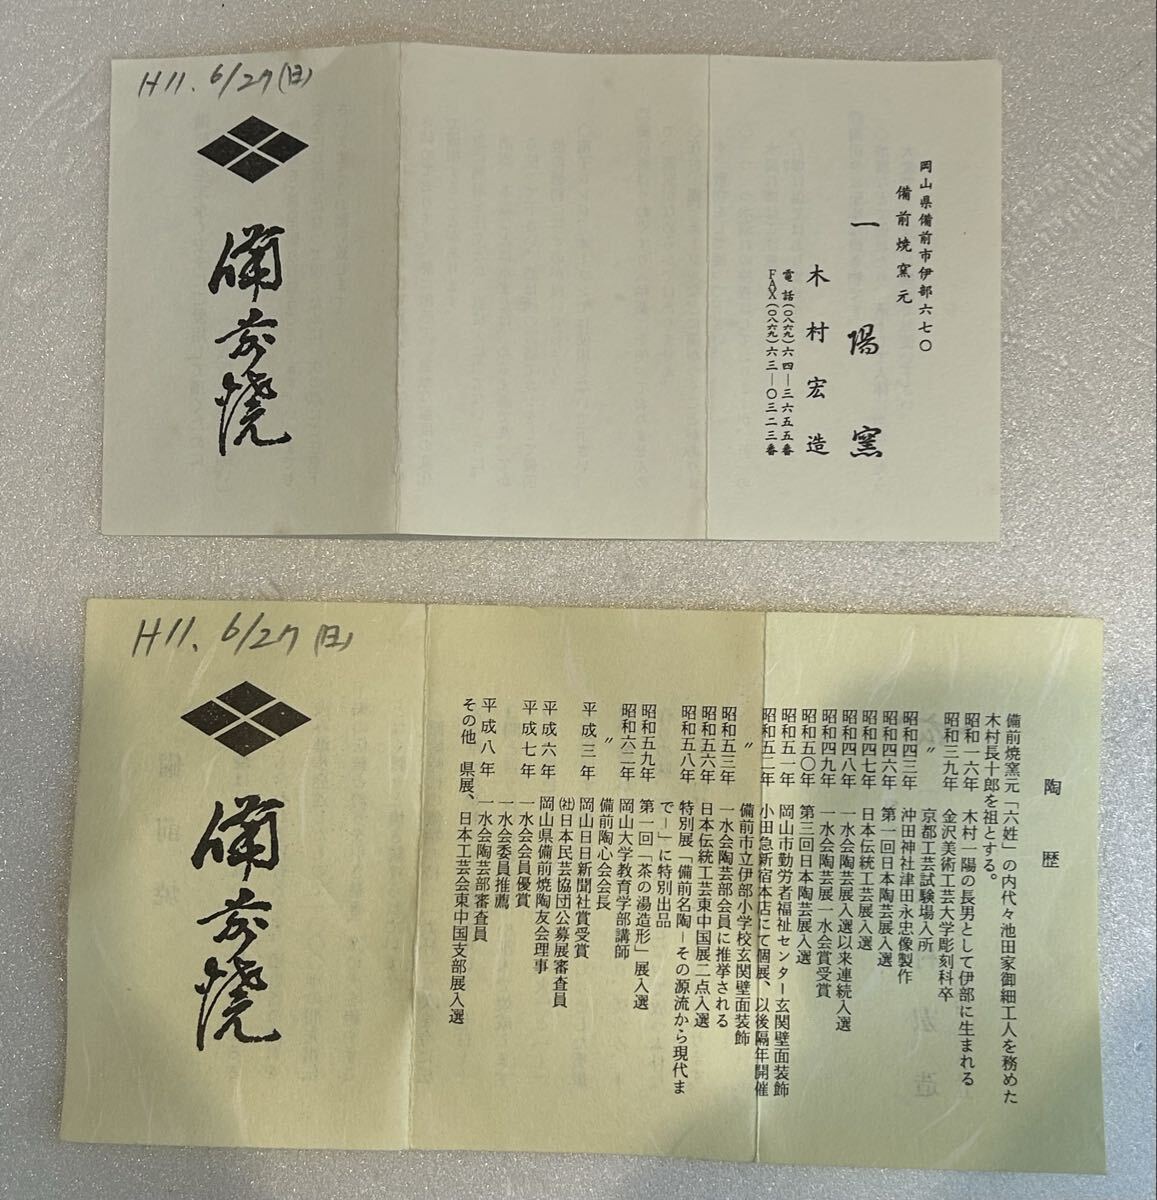 H11. 6/27(日)
備前焼
岡山県備前市伊部六七〇
備前焼窯元
一陽窯
木村宏造
電話(〇八六九)六四―三六五五番
FAX(〇八六九)六三―〇三二三番
H11. 6/27(日)
備前焼
陶歴
備前焼窯元「六姓」の内代々池田家御細工人を務めた
木村長十郎を祖とする。
昭和一六年 木村一陽の長男として伊部に生まれる
昭和三九年 金沢美術工芸大学彫刻科卒
〃 京都工芸試験場入所
昭和四三年 沖田神社津田永忠像製作
昭和四六年 第一回日本陶芸展入選
昭和四七年 日本伝統工芸展入選
昭和四八年 一水会陶芸展入選以来連続入選
昭和四九年 一水会陶芸展一水会賞受賞
昭和五〇年 第三回日本陶芸展入選
昭和五一年 岡山市勤労者福祉センター玄関壁面装飾
昭和五二年 小田急新宿本店にて個展、以後隔年開催
〃 備前市立伊部小学校玄関壁面装飾
昭和五三年 一水会陶芸部会員に推挙される
昭和五六年 日本伝統工芸東中国展二点入選
昭和五八年 特別展「備前名陶―その源流から現代ま
で―」に特別出品
昭和五九年 第一回「茶の湯造形」展入選
昭和六二年 岡山大学教育学部講師
〃 備前陶心会会長
平成三年 岡山日日新聞社賞受賞
㈳日本民芸協団公募展審査員
平成六年 岡山県備前焼陶友会理事
平成七年 一水会会員優賞
一水会委員推薦
平成八年 一水会陶芸部審査員
その他 県展、日本工芸会東中国支部展入選